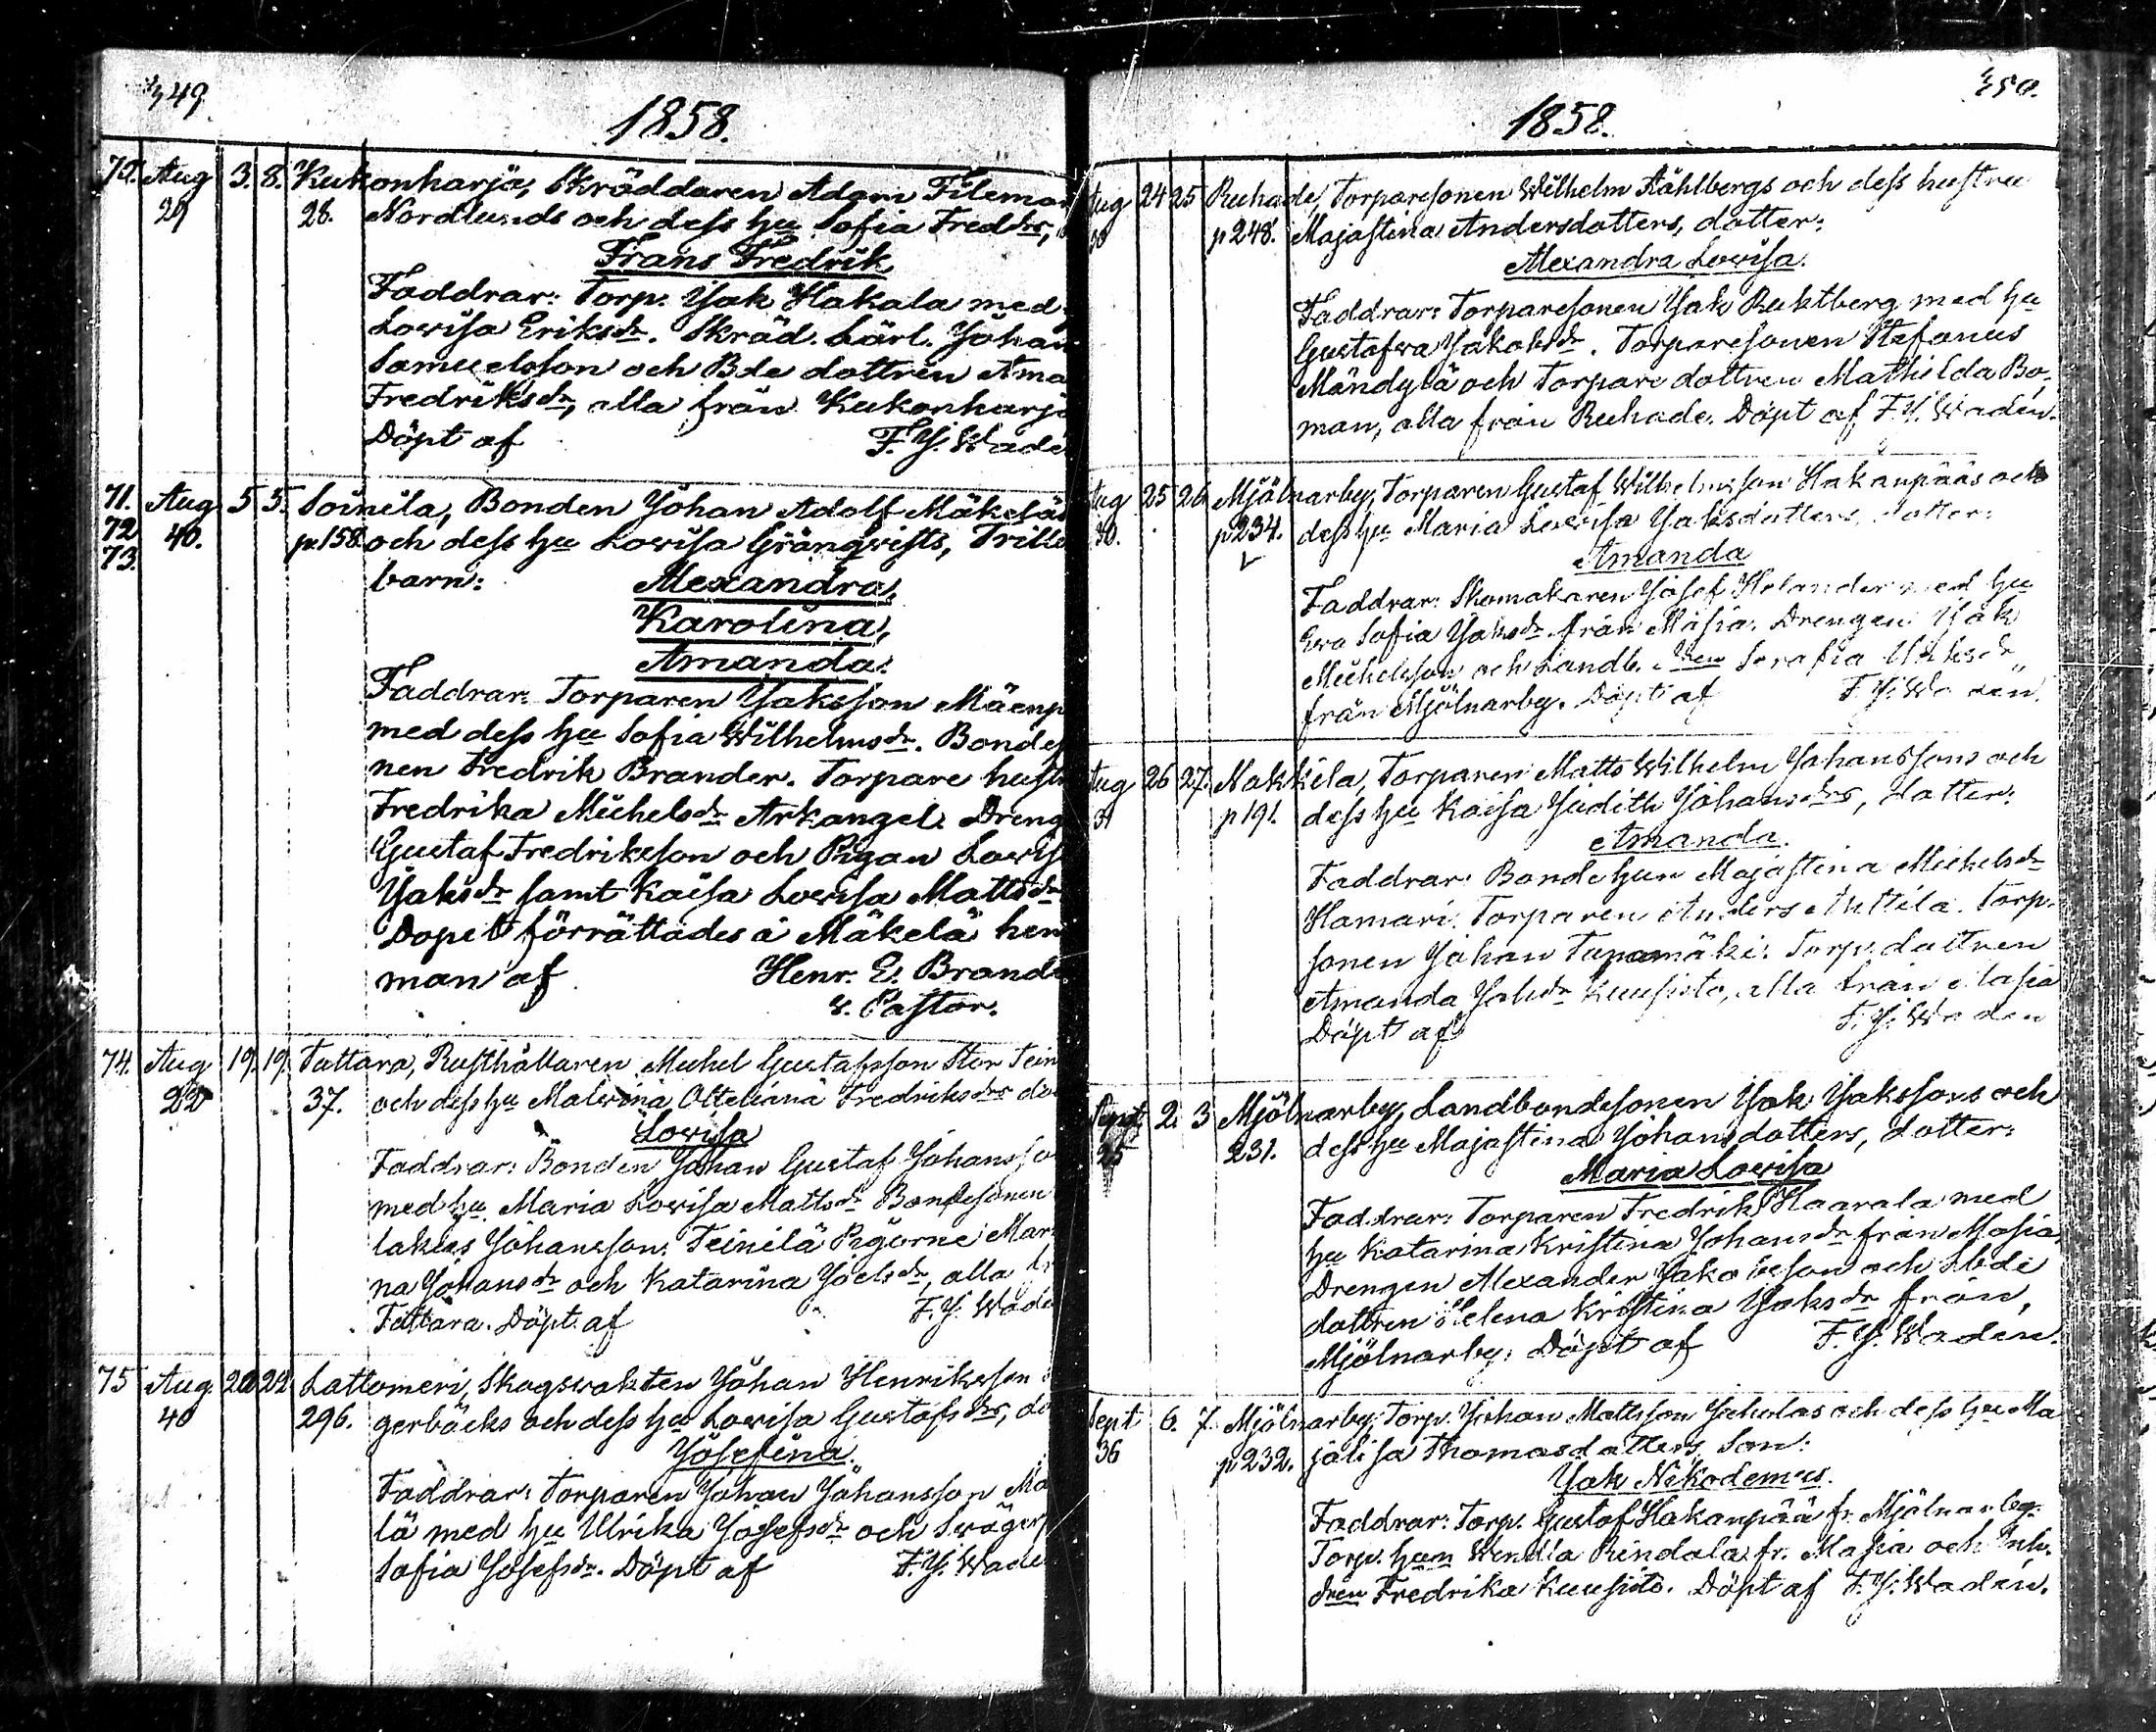 349
1858.
70. Aug 3. 8. Kukonharja, Skräddaren Adam Filemon
29 28. Nordlunds och dess hu Sofia Fredrs,
Frans Fredrik
Faddrar: Torp. Isak Hakala med
Lovisa Eriksdr. Skräd. Lärl. Johan
Samuelsson och Bde dottren Ama
Fredriksdr, alla från Kukonharja
Döpt af F. J. Wadé
71. Aug 5 5. Soinila, Bonden Johan Adolf Mäkeläs
72 40. p.158. och dess hu Lovisa Gränqvists, Trille
73. barn: Alexandra,
Karolina,
Amanda:
Faddrar: Torparen Isaksson Mäenp
med dess hu Sofia Wilhelmsdr. Bondes
nen Fredrik Brander. Torpare hustr
Fredrika Michelsdr Arkangel. Dreng
Gustaf Fredriksson och Pigan Lovis
Isaksdr samt Kaisa Lovisa Mattsdr
Dopet förrättades å Mäkelä hem
man af Henr. E. Brand
v. Pastor.
74. Aug 19. 19. Tattara, Rusthållaren Michel Gustafsson Stor Tein
22 37. och dess hu Malvina Otteliana Fredriksdrs do
Lovisa
Faddrar: Bonden Johan Gustaf Johansso
med hu Maria Lovisa Mattsdr Bondesonen
lakias Johansson. Teinilä Pigorne Mar
na Johansdr och Katarina Joelsdr, alla fr
Tattara. Döpt af F. J. Wade
75 Aug 20 22 Lattomeri, Skogsvakten Johan Henriksson
40 296. gerbäcks och dess hu Lovisa Gustafsdrs, do
Josefina
Faddrar: Torparen Johan Johansson Mä
lä med hu Ulrika Josefsdr och Swägers
Sofia Josefsdr. Döpt af F. J. Wade
350.
1858.
Aug 24 25 Ruhade, Torparesonen Wilhelm Ståhlbergs och dess hustru
30 p 248. Majastina Andersdotters, dotter:
Alexandra Lovisa.
Faddrar: Torparesonen Isak Ruktberg med hu
Gustafva Jakobsdr. Torparesonen Stefanus
Mändylä och Torpare dottren Mathilda Bo-
man, alla från Ruhade. Döpt af F. J. Wadén.
Aug 25 26 Mjölnarby, Torparen Gustaf Wilhelmsson Hakanpääs och
30. p 234. dess hu Maria Lovisa Isaksdotters, dotter:
Amanda
Faddrar: Skomakaren Josef Helander med hu
Eva Sofia Isaksdr från Masia. Drengen Isak
Michelsson och Landb. dren Serafia Isaksdr
från Mjölnarby. Döpt af F. J. Wadén.
Aug 26 27. Nakkila, Torparen Matts Wilhelm Johanssons och
31 p 191. dess hu Kaisa Judith Johansdrs, dotter:
Amanda.
Faddrar: Bondehun Majastina Michelsdr
Hamari. Torparen Anders Anttila. Torp.
sonen Johan Tupamäki. Torp. dottren
Amanda Johsdr Kuusisto, alla från Masia
Döpt af F. J. Waden
Sept 2. 3 Mjölnarby, Landbondesonen Isak Isakssons och
25 231. dess hu Majastina Johansdotters, dotter:
Maria Lovisa
Faddrar: Torparen Fredrik Haarala med
hu Katarina Kristina Johansdr från Masia.
Drengen Alexander Jakobsson och Lbde
dottren Helena Kristina Isaksdr från
Mjölnarby. Döpt af F. J. Wadén.
Sept 6. 7. Mjölnarby, Torp. Johan Mattsson Juholas och dess hu Ma
36 p 232. jalisa Thomasdotters, Son:
Isak Nikodemus.
Faddrar: Torp. Gustaf Hakanpää fr. Mjölnarby.
Torp. hun Wendla Rindala fr. Masia och Inh.
dren Fredrika Kuusisto. Döpt af F. J. Wadén.